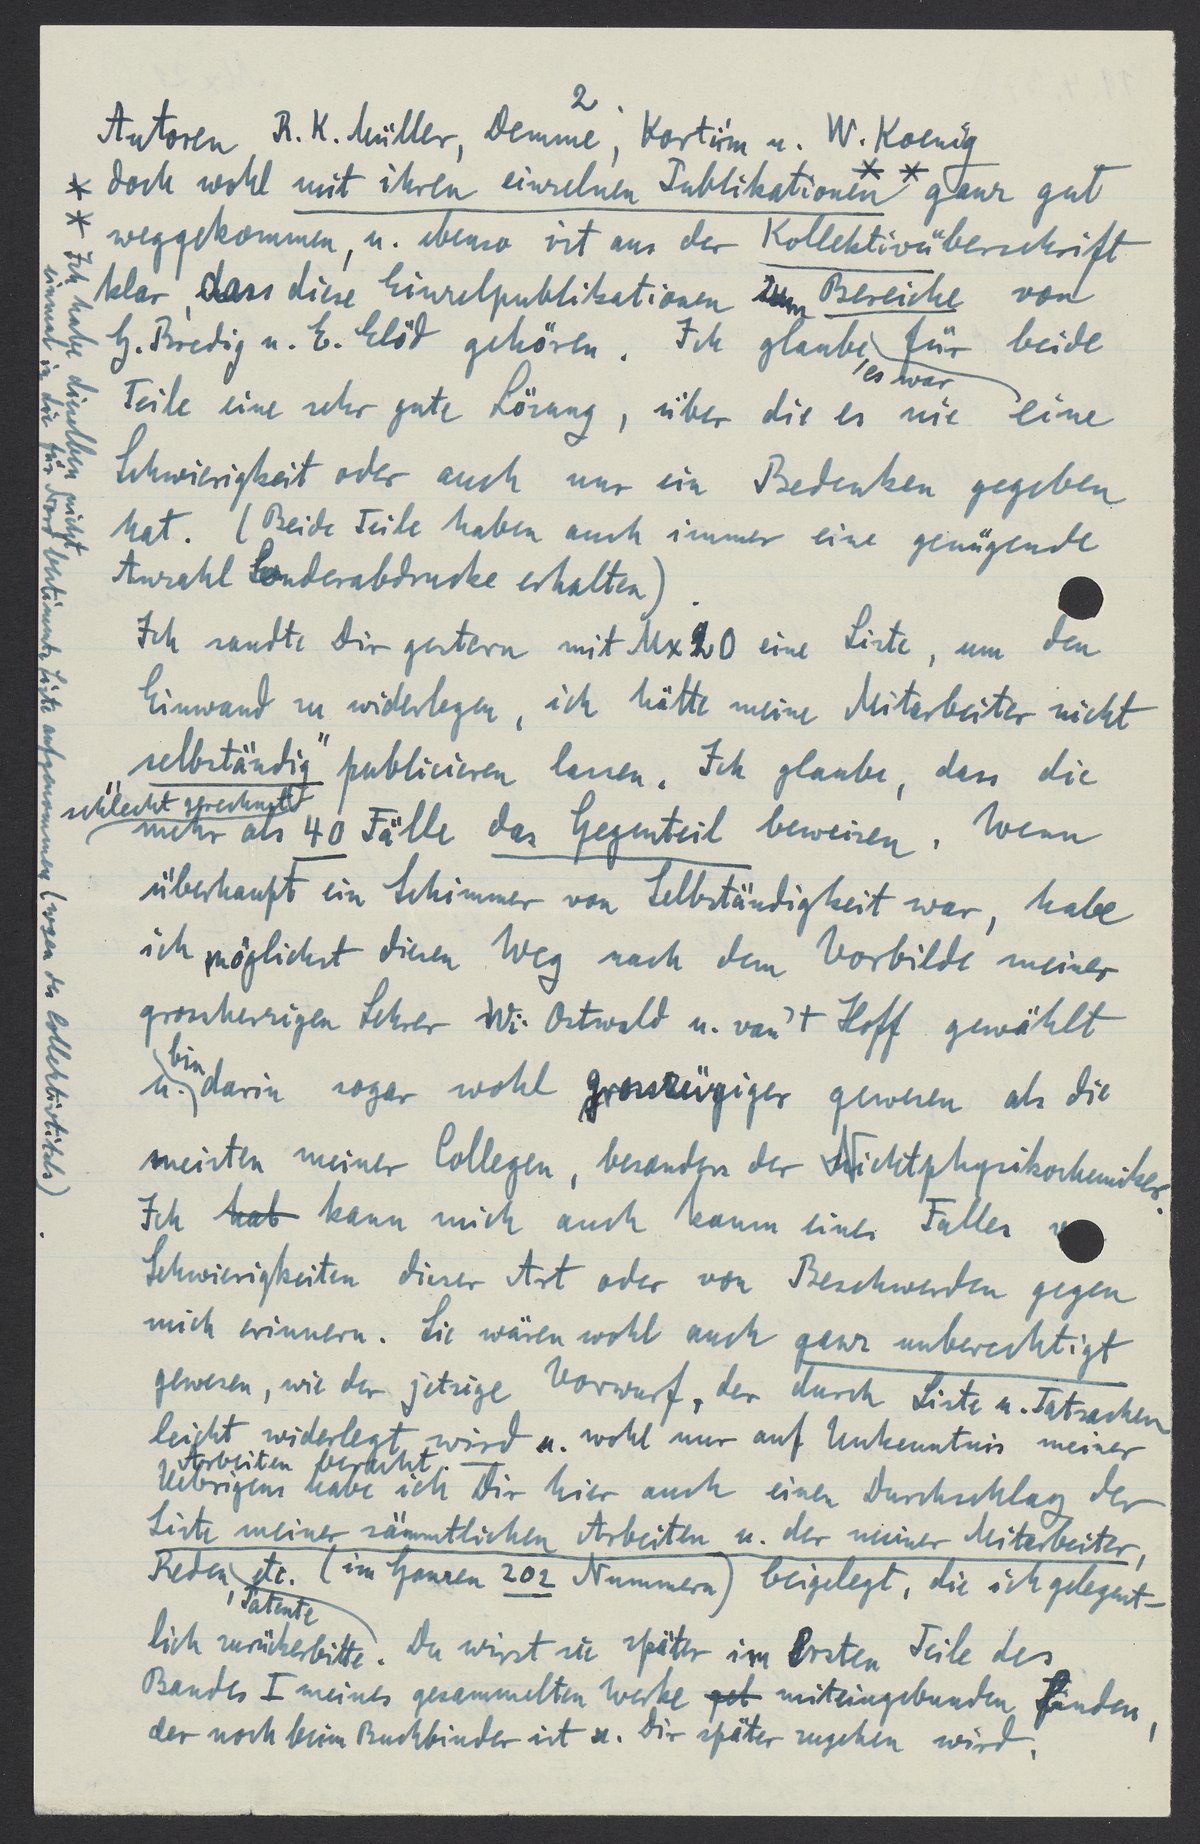 2.
Autoren R. K. Müller, Demme, Kortüm u. W. Koenig
doch wohl mit ihren einzelnen Publikationen ** ganz gut
weggekommen, u. ebenso ist aus der Kollektivüberschrift
klar, dass diese Einzelpublikationen zum Bereiche von
G. Bredig u. E. Elöd gehören. Ich glaube, es war für beide
Teile eine sehr gute Lösung, über die es nie eine
Schwierigkeit oder auch nur ein Bedenken gegeben
hat. (Beide Teile haben auch immer eine genügende
Anzahl Sonderabdrucke erhalten).
Ich sandte Dir gestern mit Mx 20 eine Liste, um den
Einwand zu widerlegen, ich hätte meine Mitarbeiter nicht
„selbständig" publicieren lassen. Ich glaube, dass die
schlecht gerechnet
mehr als 40 Fälle das Gegenteil beweisen. Wenn
überhaupt ein Schimmer von Selbständigkeit war, habe
ich möglichst diesen Weg nach dem Vorbilde meiner
grossherzigen Lehrer Wi. Ostwald u. van't Hoff gewählt
u. bin darin sogar wohl grosszügiger gewesen als die
meisten meiner Collegen, besonders der Nichtphysikochemiker.
Ich hab kann mich auch kaum eines Falles
Schwierigkeiten dieser Art oder von Beschwerden gegen
mich erinnern. Sie wären wohl auch ganz unberechtigt
gewesen, wie der jetzige Vorwurf, der durch Liste u. Tatsachen
leicht widerlegt wird u. wohl nur auf Unkenntnis meiner
Arbeiten beruht.
Uebrigens habe ich Dir hier auch einen Durchschlag der
Liste meiner sämmtlichen Arbeiten u. der meiner Mitarbeiter,
Reden, Patente etc. (im Ganzen 202 Nummern) beigelegt, die ich gelegent-
lich zurückerbitte. Du wirst sie später im Ersten Teile des
Bandes I meines gesammelten Werke gef miteingebunden finden,
der noch beim Buchbinder ist u. Dir später zugehen wird.
** Ich habe dieselben nicht
einmal in die für Nord bestimmte Liste aufgenommen (wegen des Collektivtitels)